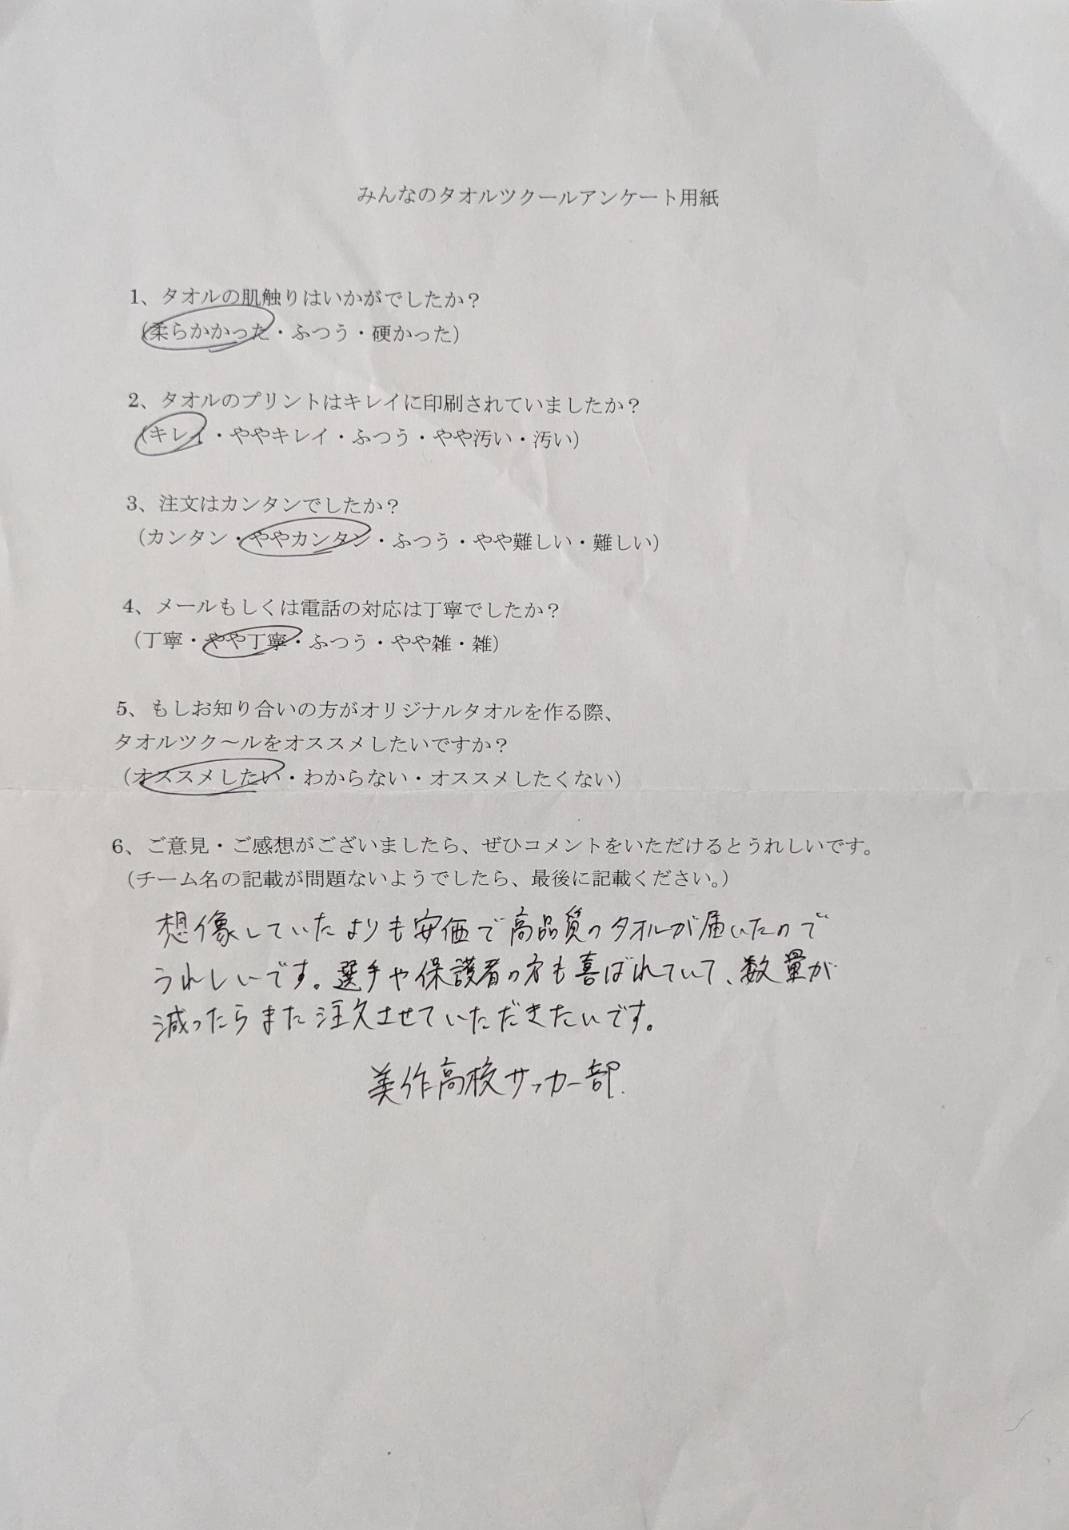 みんなのタオルツクールアンケート用紙
1、タオルの肌触りはいかがでしたか？
（柔らかかった・ふつう・硬かった）
2、タオルのプリントはキレイに印刷されていましたか？
（キレイ・ややキレイ・ふつう・やや汚い・汚い）
3、注文はカンタンでしたか？
（カンタン・ややカンタン・ふつう・やや難しい・難しい）
4、メールもしくは電話の対応は丁寧でしたか？
（丁寧・やや丁寧・ふつう・やや雑・雑）
5、もしお知り合いの方がオリジナルタオルを作る際、
タオルツク～ルをオススメしたいですか？
（オススメしたい・わからない・オススメしたくない）
6、ご意見・ご感想がございましたら、ぜひコメントをいただけるとうれしいです。
（チーム名の記載が問題ないようでしたら、最後に記載ください。）
想像していたよりも安価で高品質のタオルが届いたので
うれしいです。選手や保護者の方も喜ばれていて、数量が
減ったらまた注文させていただきたいです。
美作高校サッカー部.